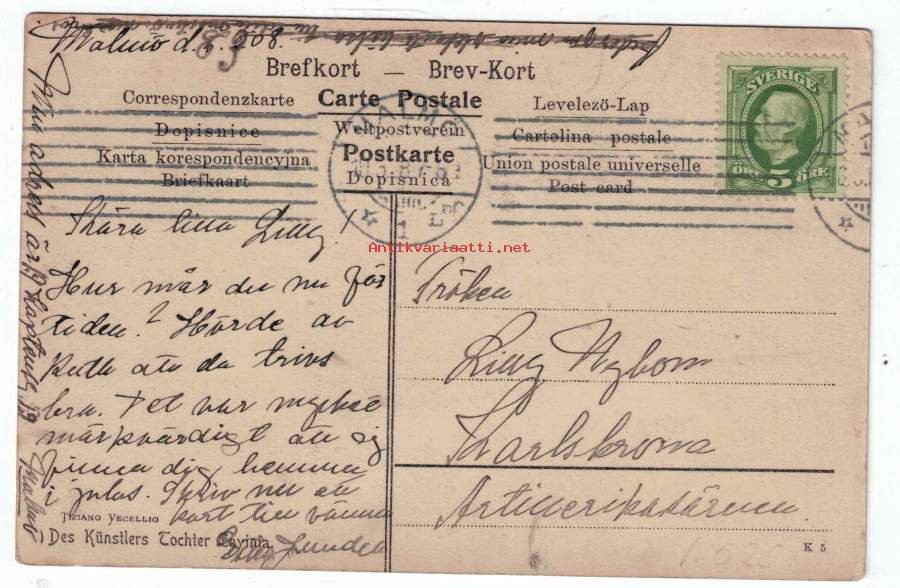 Malmö d. 2. 08.
63
Brefkort — Brev-Kort
Correspondenzkarte
Carte Postale
Levelezö-Lap
Dopisnice
Weltpostverein
Cartolina postale
Karta korespondencyjna
Postkarte
Union postale universelle
Briefkaart
Dopisnica
Post card
SVERIGE
ÖRE 5 ÖRE
MALMÖ
1 LBC
Antikvariaatti.net
Kära lilla Lilly!
Hur mår du nu för
tiden? Hörde av
Ruth att du trivs
bra. Det var mycket
märkvärdigt att ej
finna dig hemma
i julas. Skriv nu ett
kort till vännen
Lunden
Min adress är 19 Malmö
Fröken
Lilly Nybom
Karlskrona
Artillerikasärnen
TIZIANO VECELLIO
Des Künstlers Tochter Lavinia
K 5